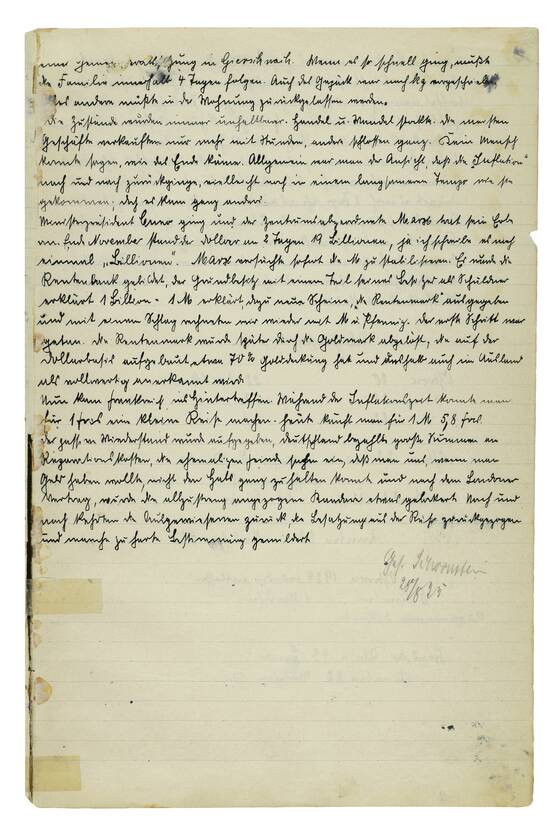 eine gemein. Zung in Hier noch. Wenn es so schnell ging, mußte
die Familie innerhalb 4 Tagen folgen. Auch das Gepäck war nach kg vorgeschrieben
alles andere mußte in der Wohnung zurückgelassen werden.
Die Zustände wurden immer unhaltbarer. Handel u. Wandel stockte. Die meisten
Geschäfte verkauften nur mehr mit Stunden, andere schlossen ganz. Kein Mensch
konnte sagen, wie das Ende käme. Allgemein war man der Ansicht, daß die "Inflation"
nach und nach zurückginge, vielleicht noch in einem langsameren Tempo wie sie
gekommen, doch es kam ganz anders.
Ministerpräsident ging und der Zentrumsabgeordnete Marx trat sein Erbe
an. Ende November stand der Dollar an 2 Tagen 19 Billionen, ja ich schreibe es noch
einmal "Billionen". Marx versuchte sofort die M zu stabilisieren. Es wurde die
Rentenbank gebildet, der Grundbesitz mit einem Teil seines Besitzes als Schuldner
erklärt 1 Billion = 1 M erklärt, dazu neue Scheine, die "Rentenmark" ausgegeben
und mit einem Schlag rechneten wir wieder mit M u. Pfennig. Der erste Schritt war
getan. Die Rentenmark wurde später durch die Goldmark abgelöst, die auf der
Dollarbasis aufgebaut, etwa 70 % Golddeckung hat und deshalb auch im Ausland
als vollwertig anerkannt wird.
Nun kam Frankreich ins Hintertreffen. Während der Inflationszeit konnte man
für 1 frcs eine kleine Reise machen. Heute kauft man für 1 M 5,8 frcs.
Der passive Wiederstand wurde aufgegeben, Deutschland bezahlte große Summen an
Reparationskosten, die ehemaligen Feinde sahen ein, daß man uns, wenn man
Geld haben wollte, nicht den Hals ganz zuhalten konnte und nach dem Londoner
Vertrag, wurde die allzustreng angezogene Kandare etwas gelockert. Nach und
nach kehrten die Ausgewiesenen zurück, die Besatzung aus der Ruhr zurückgezogen
und manche zu harte Bestimmung gemildert.
Ges.
28/8.25